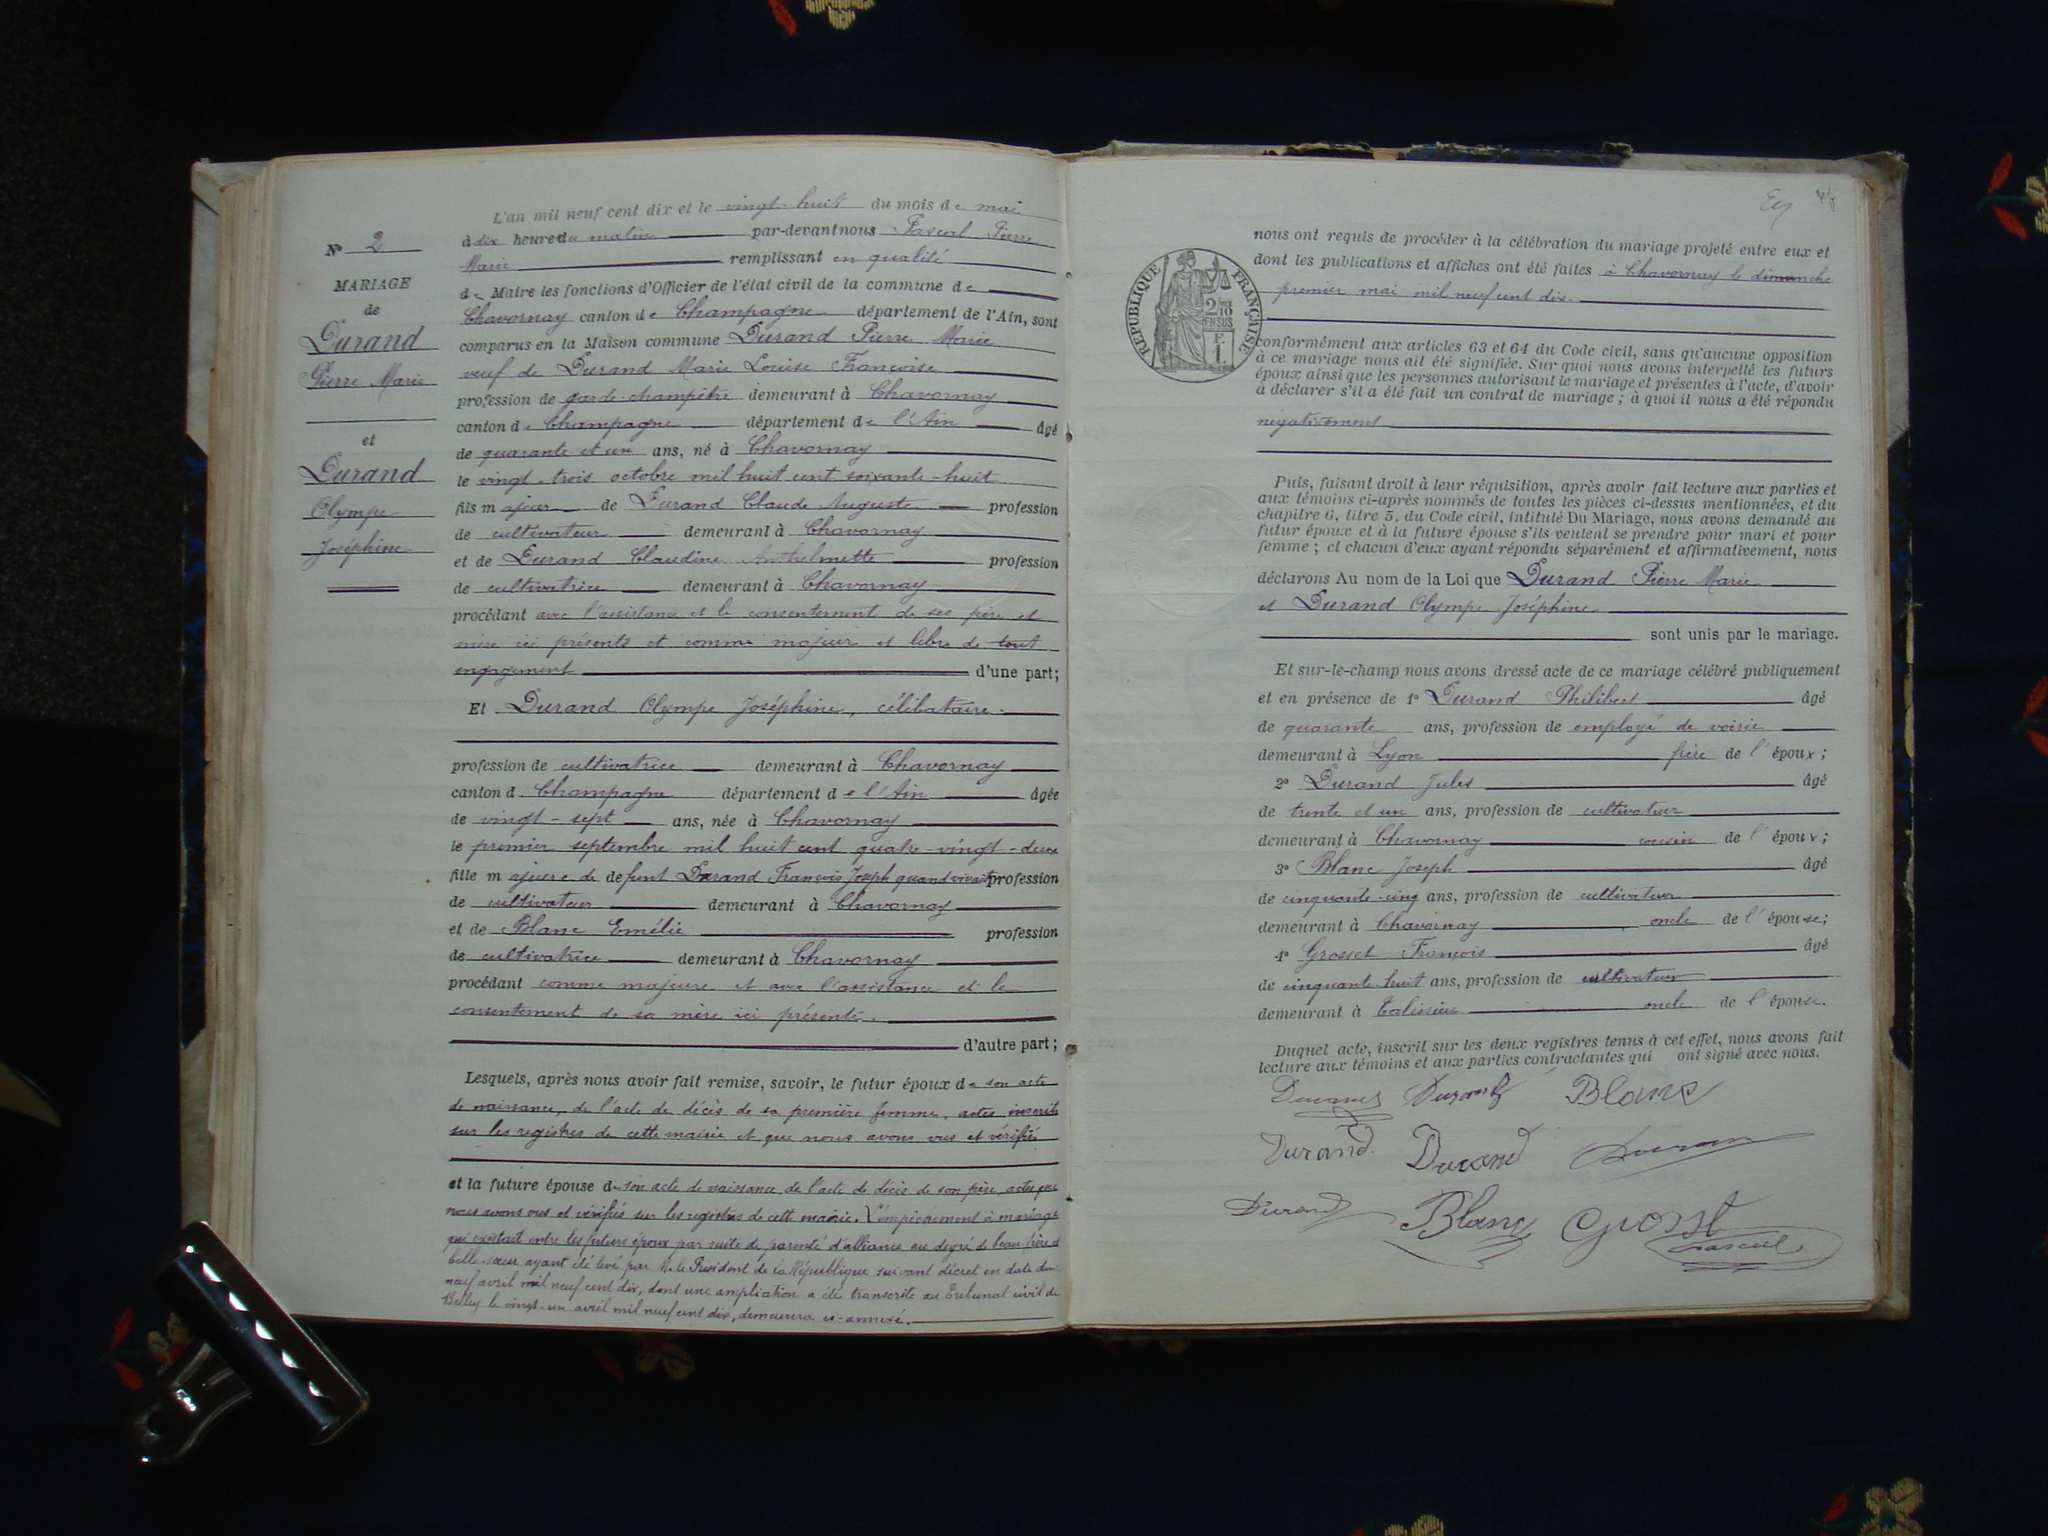 N° 2
MARIAGE
de
Durand
Pierre Marie
et
Durand
Olympe
Joséphine
L'an mil neuf cent dix et le vingt-huit du mois de mai
à dix heure du matin par-devant nous Pascal Pierre
Marie remplissant en qualité
de Maire les fonctions d'Officier de l'état civil de la commune de
Chavornay canton de Champagne département de l'Ain, sont
comparus en la Maison commune Durand Pierre Marie
veuf de Durand Marie Louise Françoise
profession de garde-champêtre demeurant à Chavornay
canton de Champagne département de l'Ain âgé
de quarante et un ans, né à Chavornay
le vingt-trois octobre mil huit cent soixante-huit
fils majeur de Durand Claude Auguste profession
de cultivateur demeurant à Chavornay
et de Durand Claudine Anthelmette profession
de cultivatrice demeurant à Chavornay
procédant avec l'assistance et le consentement de ses père et
mère ici présents et comme majeur et libre de tout
engagement d'une part;
Et Durand Olympe Joséphine, célibataire
profession de cultivatrice demeurant à Chavornay
canton d Champagne département de l'Ain âgée
de vingt-sept ans, née à Chavornay
le premier septembre mil huit cent quatre-vingt-deux
fille majeure de defunt Durand François Joseph quand vivait profession
de cultivateur demeurant à Chavornay
et de Blanc Emélie profession
de cultivatrice demeurant à Chavornay
procédant comme majeure et avec l'assistance et le
consentement de sa mère ici présente.
d'autre part;
Lesquels, après nous avoir fait remise, savoir, le futur époux de son acte
de naissance, de l'acte de décès de sa première femme, actes inscrits
sur les registres de cette mairie et que nous avons vus et vérifiés
et la future épouse de son acte de naissance, de l'acte de décès de son père, actes que
nous avons vus et vérifiés sur les registres de cette mairie. L'empêchement à mariage
qui existait entre les futurs époux par suite de parenté d'alliance au degré de beau frère et
belle-sœur ayant été levé par M. le Président de la République suivant décret en date du
neuf avril mil neuf cent dix, dont une ampliation a été transcrite au Tribunal civil de
Belley le vingt-un avril mil neuf cent dix, demeurera ci-annexé.
REPUBLIQUE FRANÇAISE
2/10 EN SUS
F. 1.
nous ont requis de procéder à la célébration du mariage projeté entre eux et
dont les publications et affiches ont été faites à Chavornay le dimanche
premier mai mil neuf cent dix.
conformément aux articles 63 et 64 du Code civil, sans qu'aucune opposition
à ce mariage nous ait été signifiée. Sur quoi nous avons interpellé les futurs
époux ainsi que les personnes autorisant le mariage et présentes à l'acte, d'avoir
à déclarer s'il a été fait un contrat de mariage; à quoi il nous a été répondu
négativement
Puis, faisant droit à leur réquisition, après avoir fait lecture aux parties et
aux témoins ci-après nommés de toutes les pièces ci-dessus mentionnées, et du
chapitre 6, titre 5, du Code civil, intitulé Du Mariage, nous avons demandé au
futur époux et à la future épouse s'ils veulent se prendre pour mari et pour
femme; et chacun d'eux ayant répondu séparément et affirmativement, nous
déclarons Au nom de la Loi que Durand Pierre Marie
et Durand Olympe Joséphine
sont unis par le mariage.
Et sur-le-champ nous avons dressé acte de ce mariage célébré publiquement
et en présence de 1° Durand Philibert âgé
de quarante ans, profession de employé de voirie
demeurant à Lyon frère de l'époux;
2° Durand Jules âgé
de trente et un ans, profession de cultivateur
demeurant à Chavornay cousin de l'époux;
3° Blanc Joseph âgé
de cinquante-cinq ans, profession de cultivateur
demeurant à Chavornay oncle de l'épouse;
4° Grosset François âgé
de cinquante huit ans, profession de cultivateur
demeurant à Talissieu oncle de l'épouse.
Duquel acte, inscrit sur les deux registres tenus à cet effet, nous avons fait
lecture aux témoins et aux parties contractantes qui ont signé avec nous.
Durand Durand Blanc
Durand. Durand Durand
Durand Blanc Grosset
Pascal